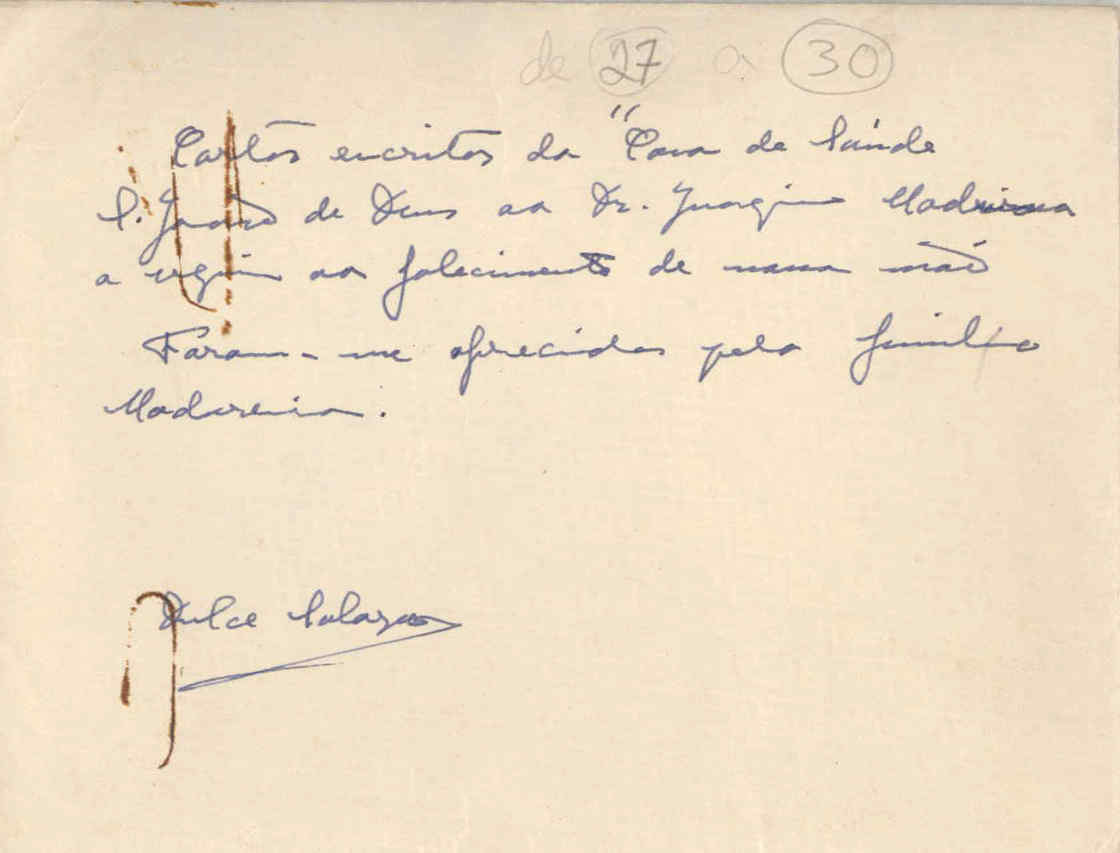 de 27 a 30
Cartas escritas da "Casa de Saúde
S. João de Deus ao Dr. Joaquim Madureira
a seguir ao falecimento de nossa mãe
Foram-me oferecidas pela família
Madureira.
Dulce Salazar